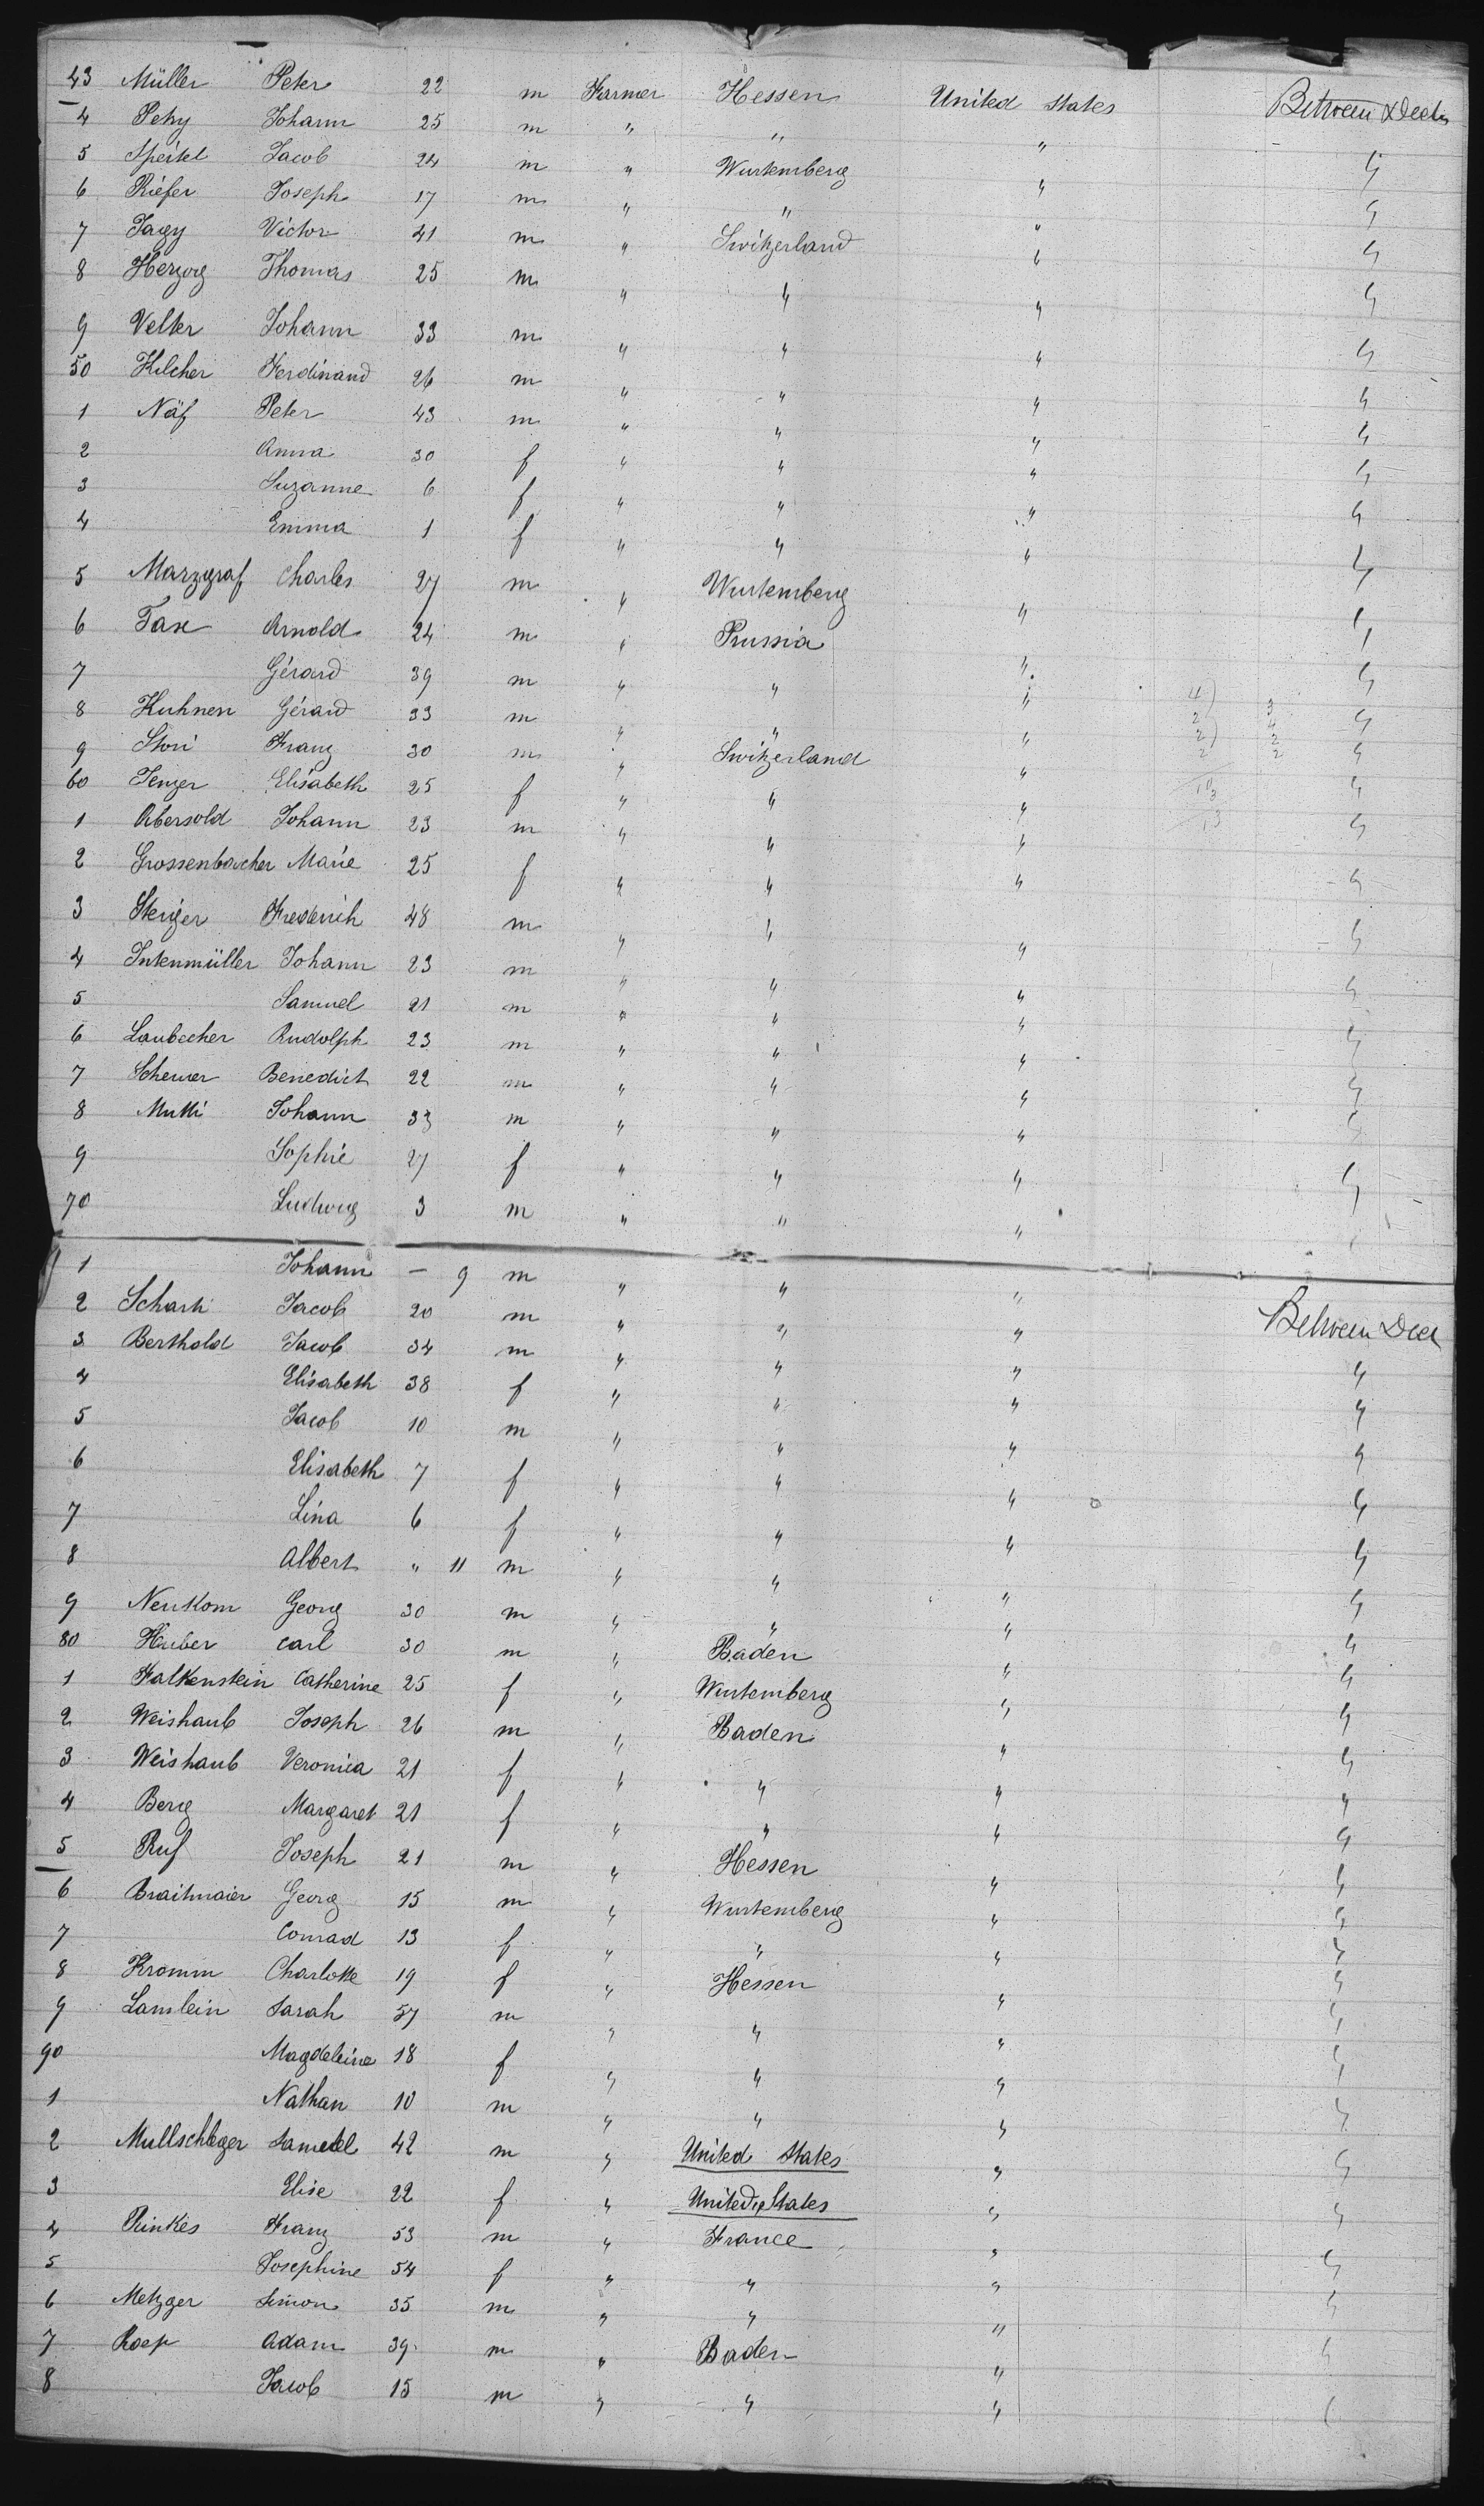 43 Müller Peter 22 m Farmer Hessen United States Between Decks
4 Petry Johann 25 m " " "
5 Speitel Jacob 24 m " Wurtemberg " "
6 Riefer Joseph 17 m " " " "
7 Jagy Victor 41 m " Switzerland " "
8 Herzog Thomas 25 m " " " "
9 Velter Johann 33 m " " " "
50 Kilcher Ferdinand 26 m " " " "
1 Näf Peter 43 m " " " "
2 Anna 30 f " " " "
3 Suzanne 6 f " " " "
4 Emma 1 f " " " "
5 Marzgraf Charles 27 m " Wurtemberg " "
6 Taxe Arnold 24 m " Prussia " "
7 Gérard 39 m " " " "
8 Kuhnen Gérard 33 m " " " "
9 Stori Franz 30 m " Switzerland " "
60 Jenzer Elisabeth 25 f " " " "
1 Abersold Johann 23 m " " " "
2 Grossenbacher Marie 25 f " " " "
3 Steiger Frederich 48 m " " " "
4 Intenmüller Johann 23 m " " " "
5 Samuel 21 m " " " "
6 Laubecher Rudolph 23 m " " " "
7 Scheurer Benedict 22 m " " " "
8 Mutti Johann 33 m " " " "
9 Sophie 27 f " " " "
70 Ludwig 3 m " " " "
1 Johann – 9 m " " "
2 Schark Jacob 20 m " " " Between Deck
3 Berthold Jacob 34 m " " " "
4 Elisabeth 38 f " " " "
5 Jacob 10 m " " " "
6 Elisabeth 7 f " " " "
7 Lina 6 f " " " "
8 Albert " 11 m " " " "
9 Neukom Georg 30 m " " " "
80 Huber Carl 30 m " Baden " "
1 Falkenstein Catherine 25 f " Wurtemberg " "
2 Weishaub Joseph 26 m " Baden " "
3 Weishaub Veronica 21 f " " " "
4 Berg Margaret 21 f " " " "
5 Ruf Joseph 21 m " Hessen " "
6 Braitmaier Georg 15 m " Wurtemberg " "
7 Conrad 13 f " " " "
8 Kromm Charlotte 19 f " Hessen " "
9 Lamlein Sarah 57 m " " " "
90 Magdeleine 18 f " " " "
1 Nathan 10 m " " " "
2 Mullschleger Samuel 42 m " United States " "
3 Elise 22 f " United States " "
4 Rinkes Franz 53 m " France "
5 Josephine 54 f " " " "
6 Metzger Simon 35 m " " " "
7 Roep Adam 39 m " Baden " "
8 Jacob 15 m " " " "